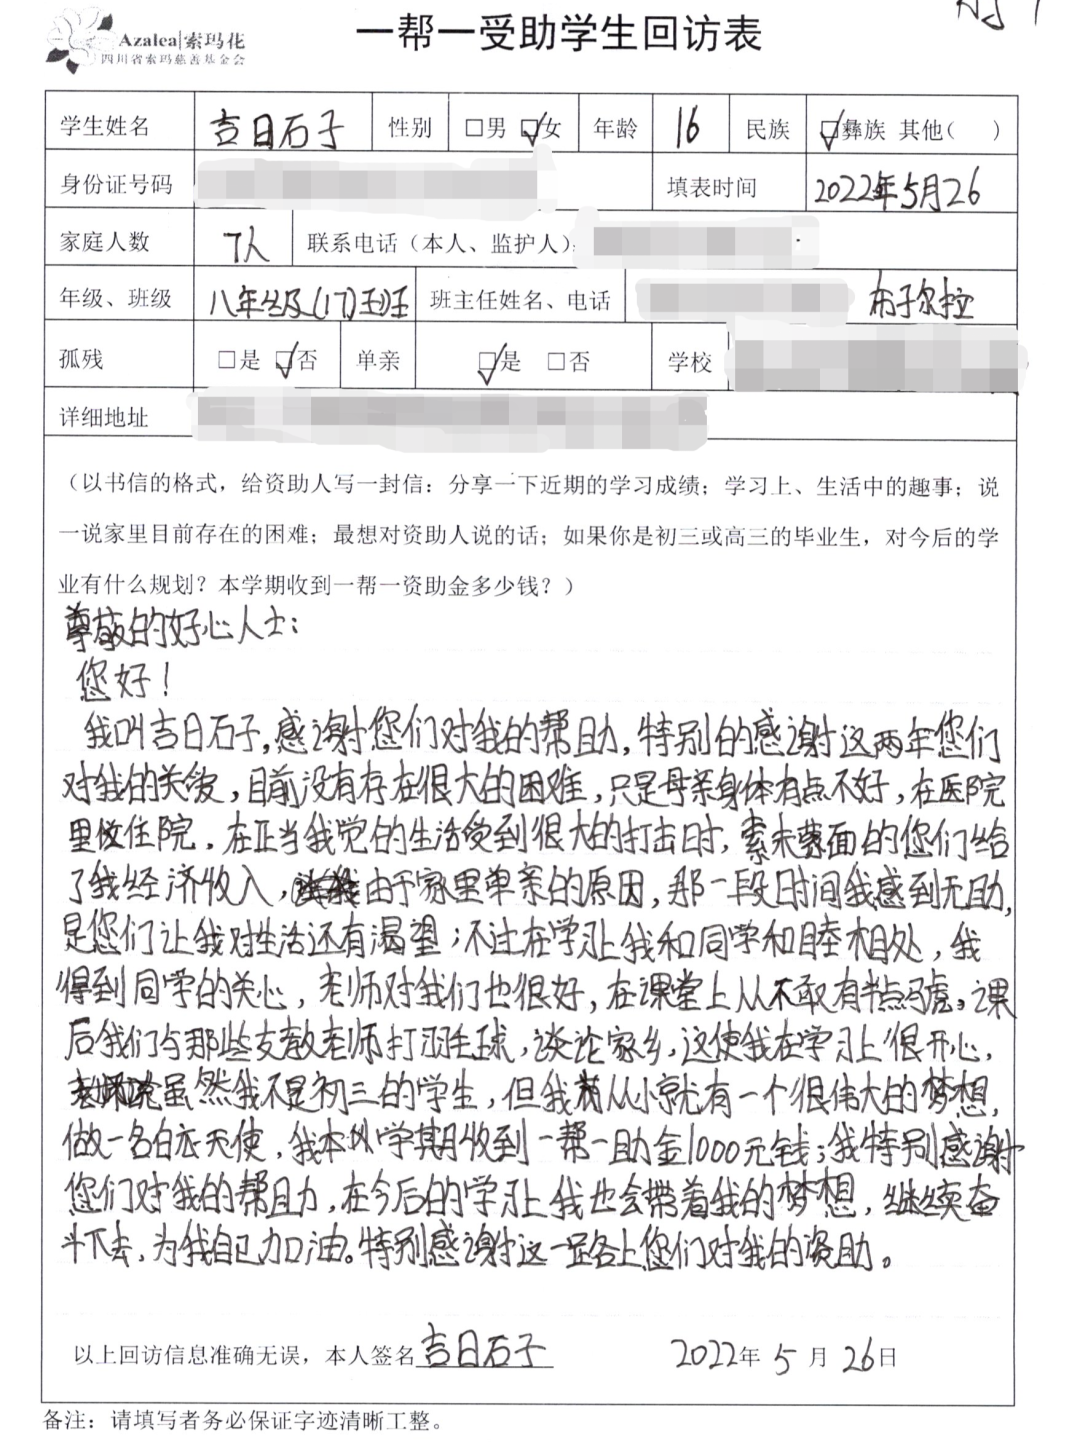 Azalea|索玛花
四川省索玛慈善基金会
一帮一受助学生回访表
学生姓名 吉日石子 性别 □男 ☑女 年龄 16 民族 ☑彝族 其他( )
身份证号码 填表时间 2022年5月26
家庭人数 7人 联系电话（本人、监护人）：
年级、班级 八年级(17)班 班主任姓名、电话 布子尔拉
孤残 □是 ☑否 单亲 ☑是 □否 学校
详细地址
（以书信的格式，给资助人写一封信：分享一下近期的学习成绩；学习上、生活中的趣事；说
一说家里目前存在的困难；最想对资助人说的话；如果你是初三或高三的毕业生，对今后的学
业有什么规划？本学期收到一帮一资助金多少钱？）
尊敬的好心人士：
您好！
我叫吉日石子，感谢您们对我的帮助，特别的感谢这两年您们
对我的关爱，目前没有存在很大的困难，只是母亲身体有点不好，在医院
里做住院，在正当我觉的生活受到很大的打击时，素未蒙面的您们给
了我经济收入，由于家里单亲的原因，那一段时间我感到无助，
是您们让我对生活还有渴望；不过在学习上我和同学和睦相处，我
得到同学的关心，老师对我们也很好，在课堂上从不敢有半点马虎。课
后我们与那些支教老师打羽毛球，谈论家乡，这使我在学习上很开心，
虽然我不是初三的学生，但我从小就有一个很伟大的梦想，
做一名白衣天使，我本学期收到一帮一助金1000元钱；我特别感谢
您们对我的帮助，在今后的学习上我也会带着我的梦想，继续奋
斗下去，为我自己加油。特别感谢这一路上您们对我的资助。
以上回访信息准确无误，本人签名 吉日石子 2022年 5 月 26日
备注：请填写者务必保证字迹清晰工整。